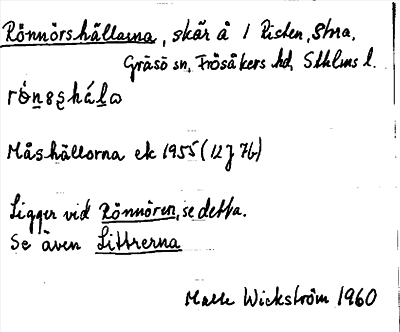 Rönnörshällarna, skär å 1 Risten, Stora,
Gräsö sn, Frösåkers hd, Sthlms l.
Måshällorna ek 1955 (12J 7b)
Ligger vid Rönnören, se detta.
Se även Littrerna
Wickström 1960